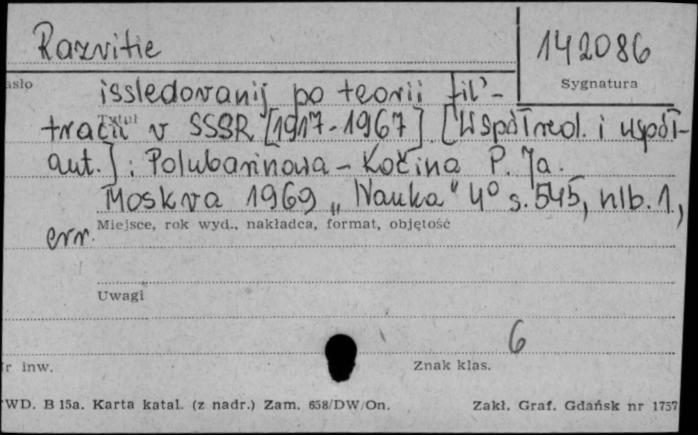 Razvitie
142086
asło
Sygnatura
issledovanij po teorii fil'-
Tytuł
tracii v SSSR [1917-1967] [Współred. i współ-
aut.]: Polubarinova-Kočina P. Ja.
Moskva 1969 „Nauka" 4° s. 545, nlb. 1,
Miejsce, rok wyd., nakładca, format, objętość
err.
Uwagi
6
r inw.
Znak klas.
WD. B 15a. Karta katal. (z nadr.) Zam. 658/DW/On.
Zakł. Graf. Gdańsk nr 1757